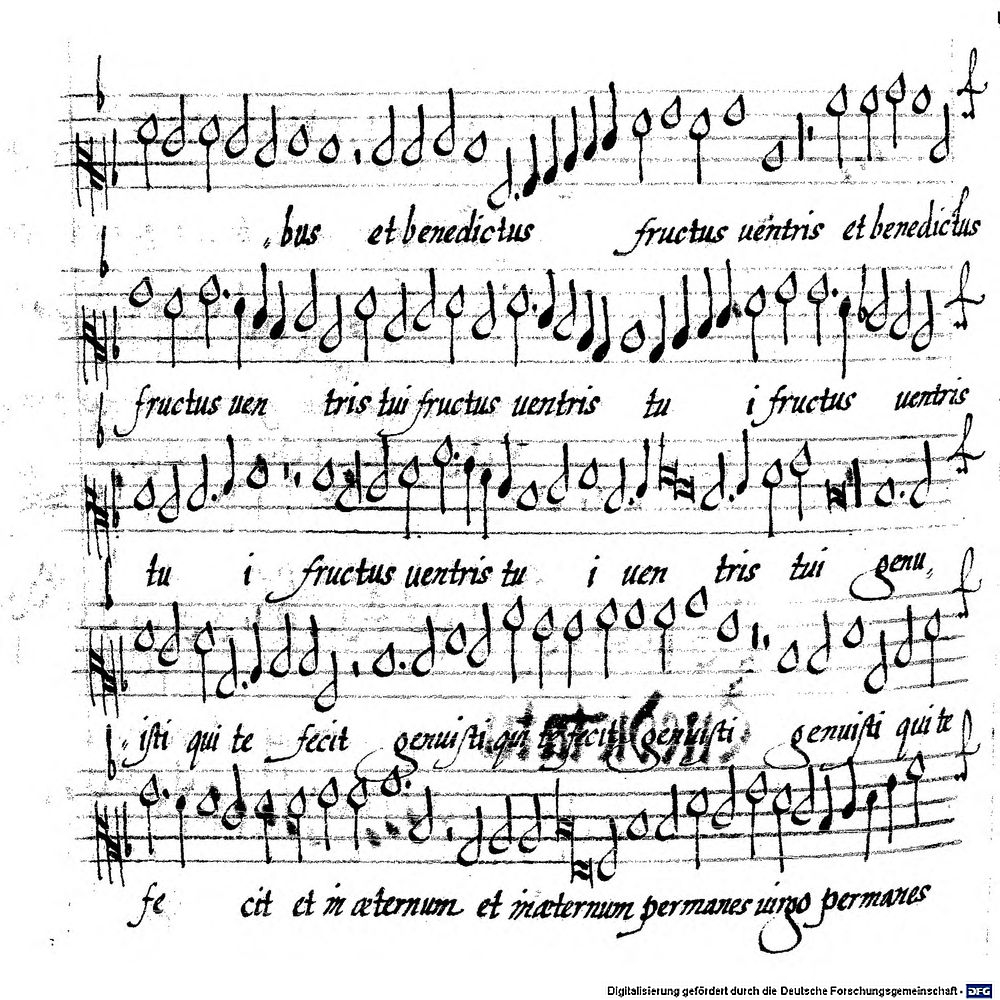 bus et benedictus fructus uentris et benedictus
fructus uen tris tui fructus uentris tu i fructus uentris
tu i fructus uentris tu i uen tris tui genu
isti qui te fecit genuisti qui te fecit genuisti genuisti qui te
fe cit et in æternum et in æternum permanes uirgo permanes
Digitalisierung gefördert durch die Deutsche Forschungsgemeinschaft - DFG